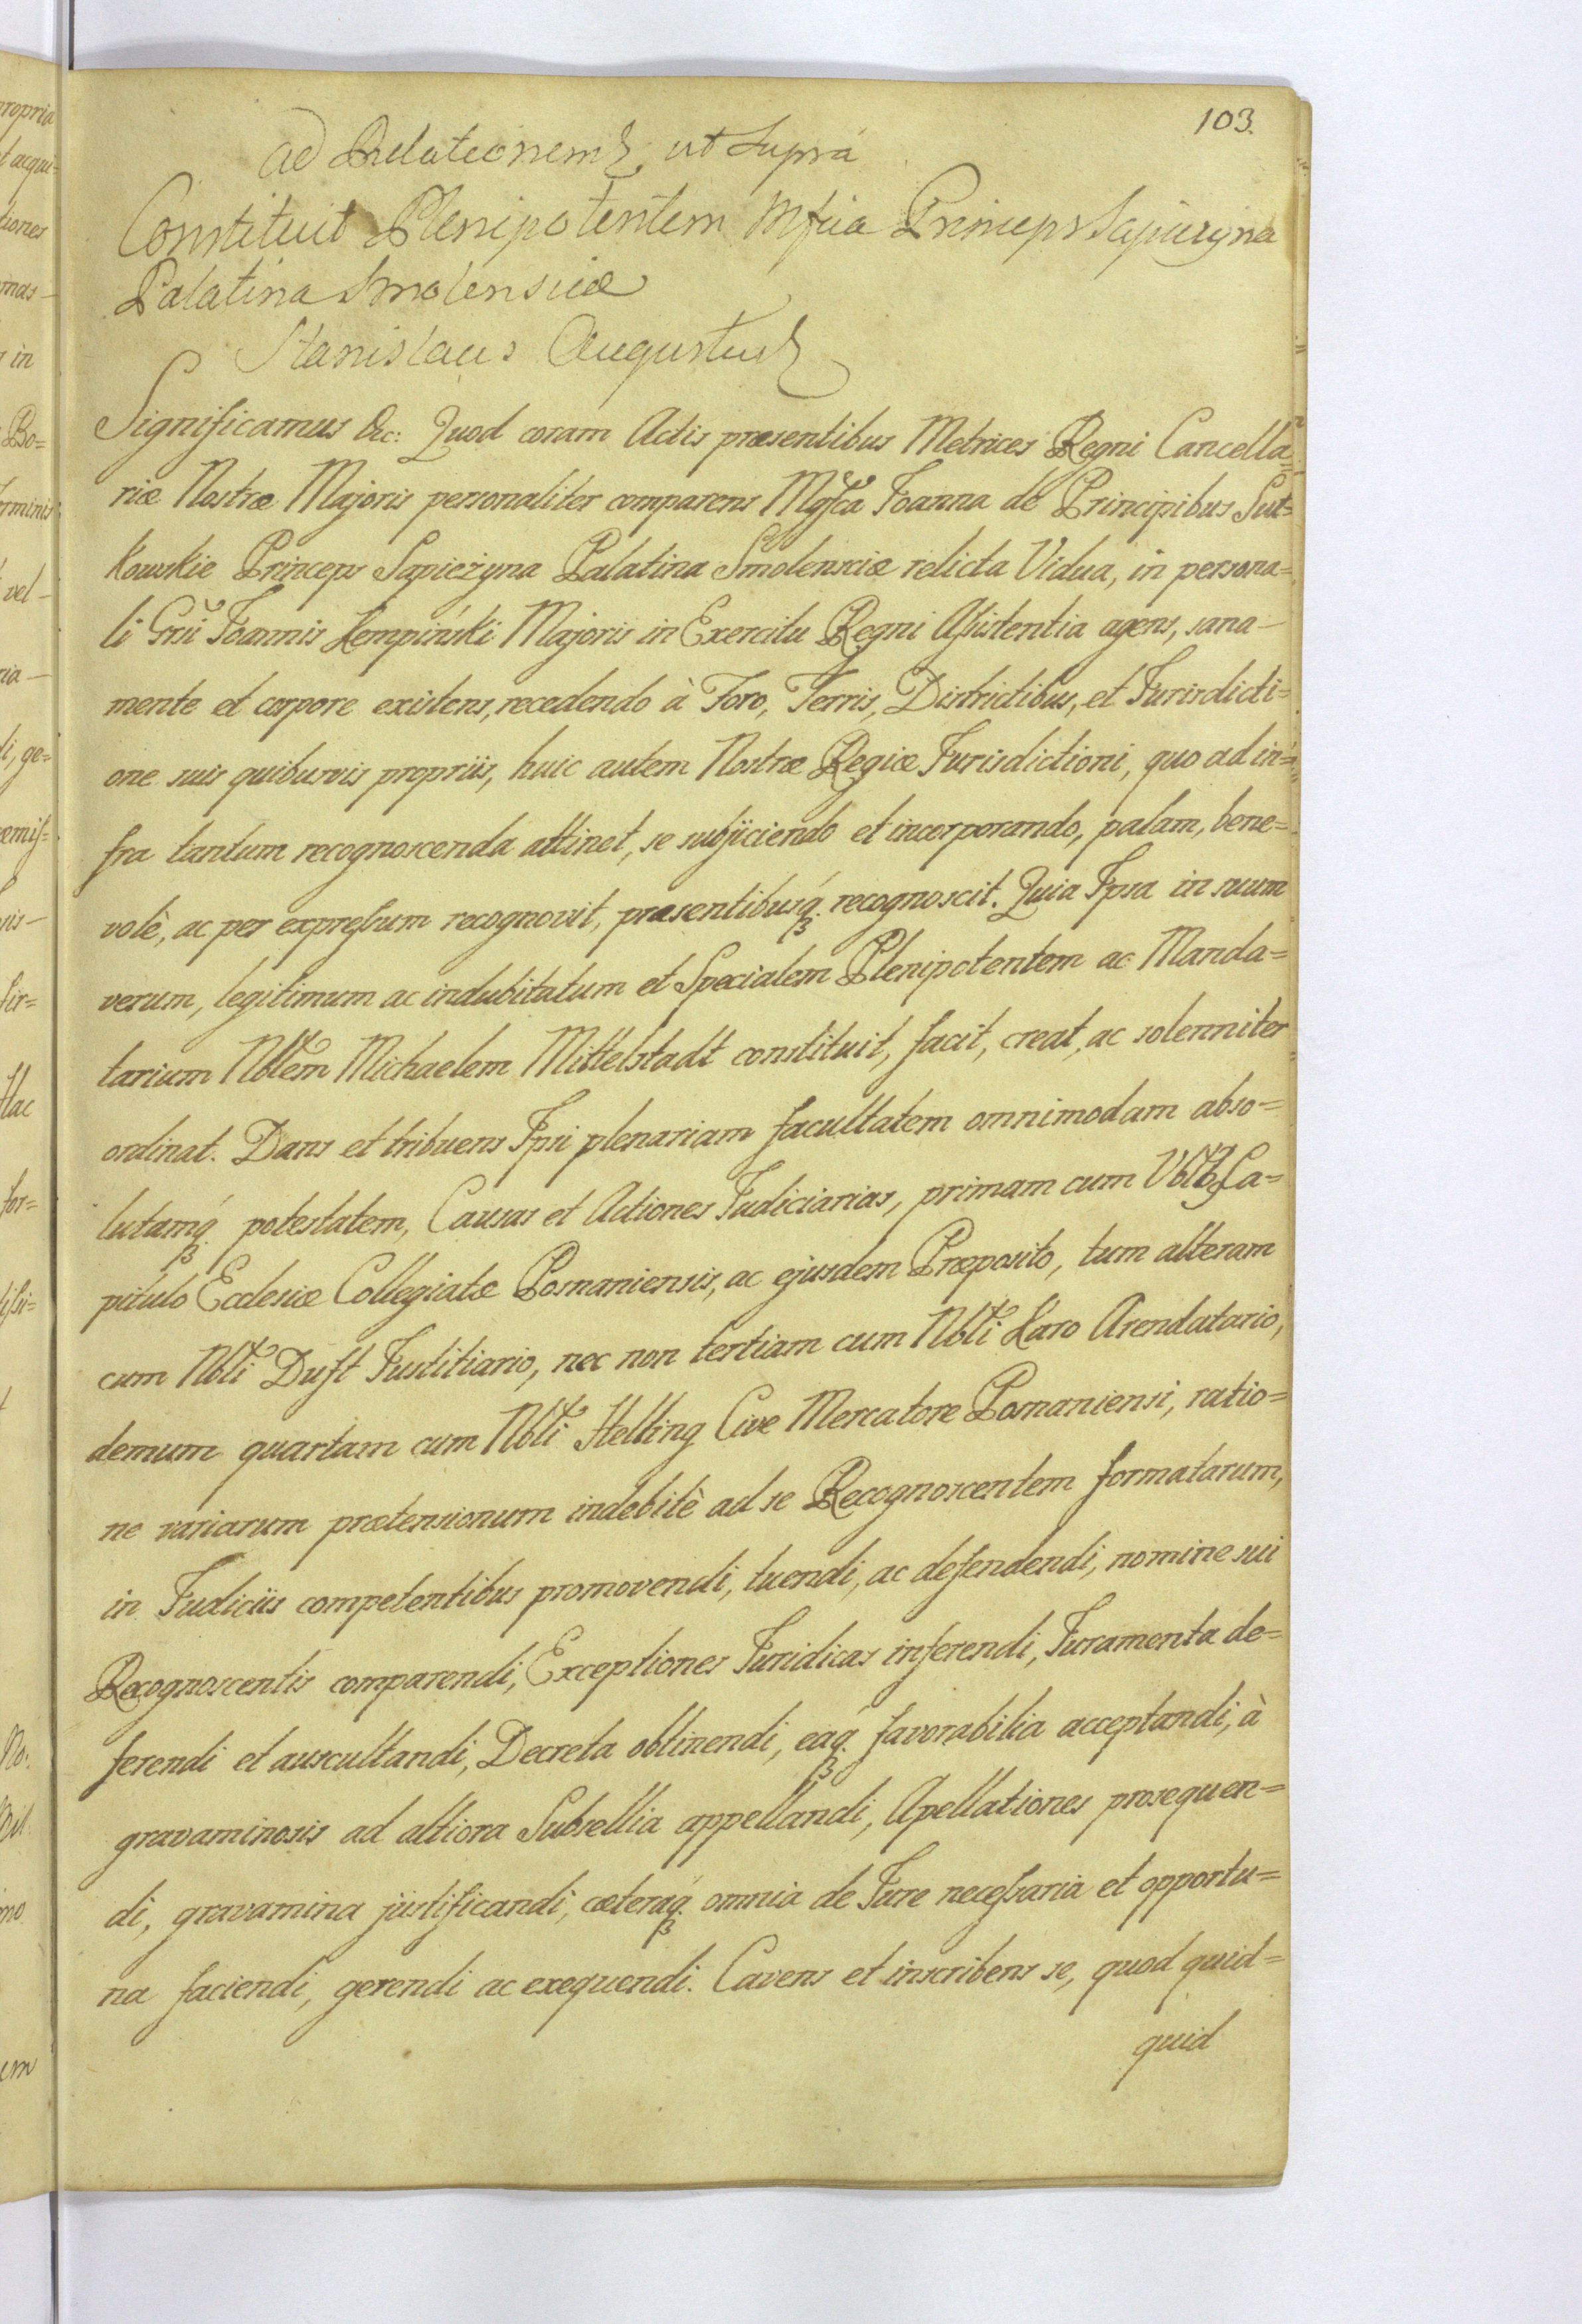 103.
ad Relationem ut supra
Constituit Plenipotentem Mfica Princeps Sapiezyna
Palatina Smolensciæ
Stanislaus Augustus
Significamus &c: Quod coram Actis præsentibus Metrices Regni Cancella=
riæ Nostræ Majoris personaliter comparens Mgfca Joanna de Principibus Sut=
kowskie Princeps Sapieżyna Palatina Smolensciæ relicta Vidua, in persona=
li Grsi Joannis Kempiński Majoris in Exercitu Regni Assistentia agens, sana
mente et corpore existens, recedendo à Foro, Terris, Districtibus, et Jurisdicti=
one suis quibusvis propriis, huic autem Nostræ Regiæ Jurisdictioni, quo ad in=
fra tantum recognoscenda attinet, se subjiciendo et incorporando, palam, bene=
volè, ac per expressum recognovit, præsentibusq. recognoscit. Quia Ipsa in suum
verum, legitimum ac indubitatum et Specialem Plenipotentem ac Manda=
tarium Nbtem Michaelem Mittelstadt constituit, facit, creat, ac solenniter
ordinat. Dans et tribuens Ipsi plenariam facultatem omnimodam abso=
lutamq. potestatem, Causas et Actiones Judiciarias, primam cum Vblb. Ca=
pitulo Ecclesiæ Collegiatæ Posnaniensis, ac ejusdem Præposito, tum alteram
cum Nbti Dust Justitiario, nec non tertiam cum Nbti Haro Arendatario,
demum quartam cum Nbti Helling Cive Mercatore Posnaniensi, ratio=
ne variarum prætensionum indebitè ad se Recognoscentem formatarum,
in Judiciis competentibus promovendi, tuendi, ac defendendi, nomine sui
Recognoscentis comparendi, Exceptiones Juridicas inferendi, Juramenta de=
ferendi et auscultandi, Decreta obtinendi, eaq. favorabilia acceptandi, à
gravaminosis ad altiora Subsellia appellandi, Apellationes prosequen=
di, gravamina justificandi, cæteraq. omnia de Jure necessaria et opportu=
na faciendi, gerendi ac exequendi. Cavens et inscribens se, quod quid=
quid